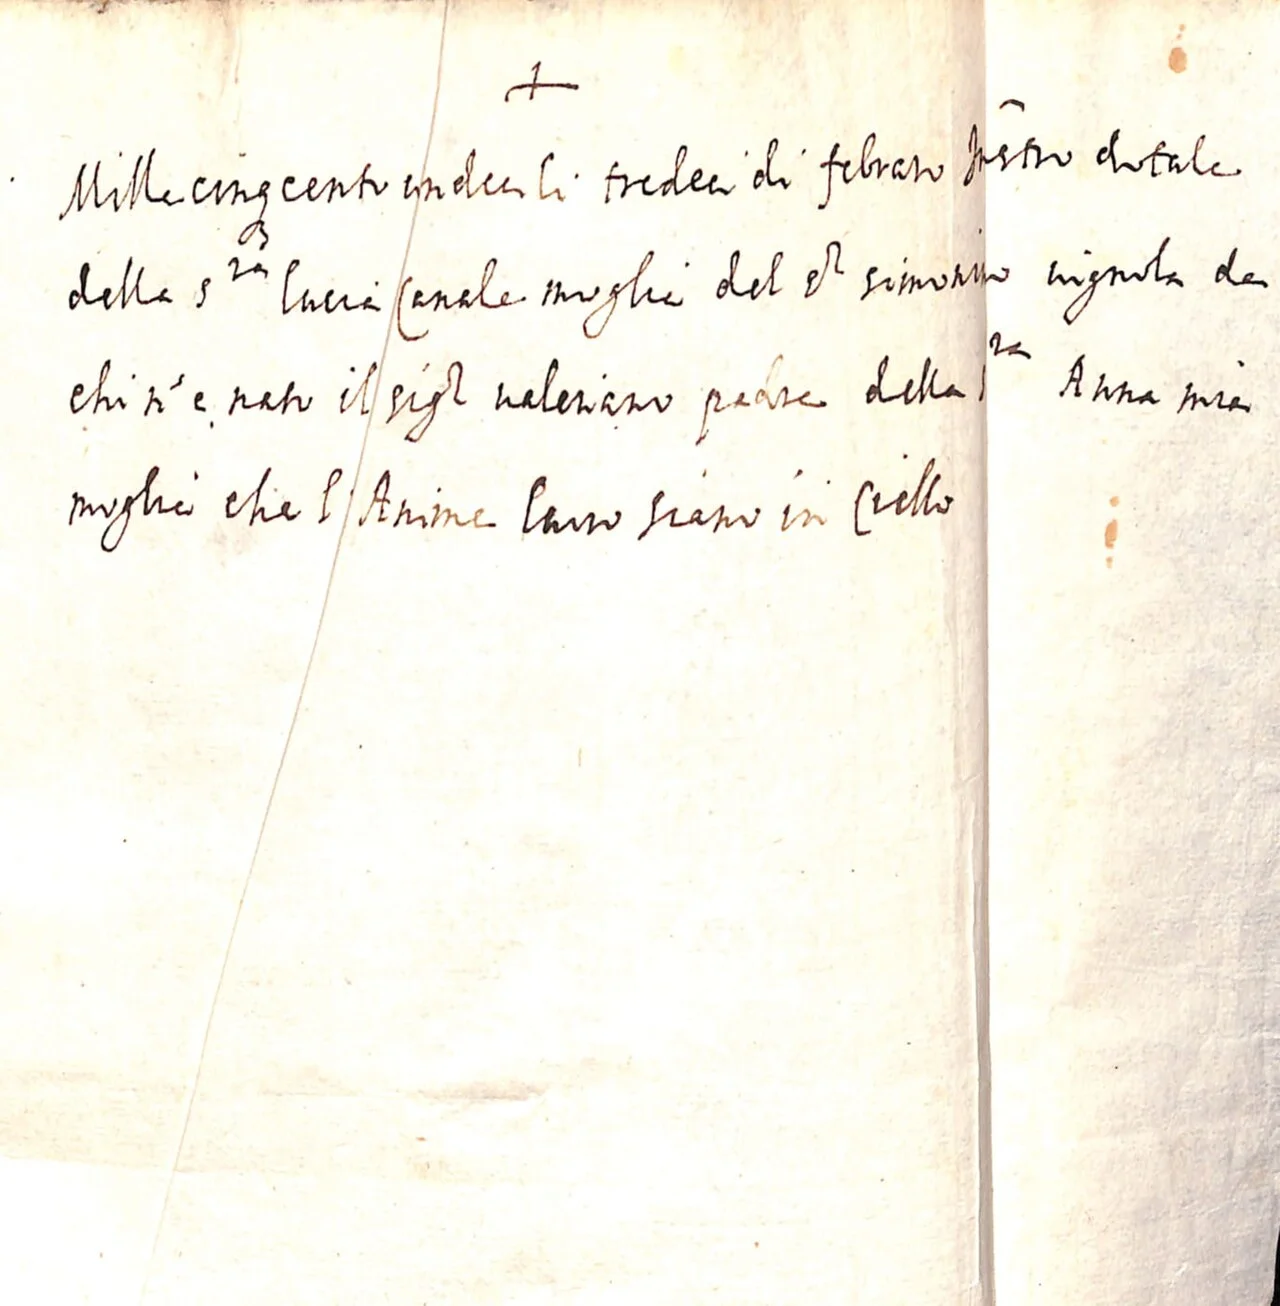 +
Mille cinqcento undeci li tredeci di febraro Instro dotale
della s.ra lucia Canale moglie del s.r simonino vignola da
chi n'e nato il sig.r valeriano padre della s.ra Anna mia
moglie che l'Anime loro siano in Ciello